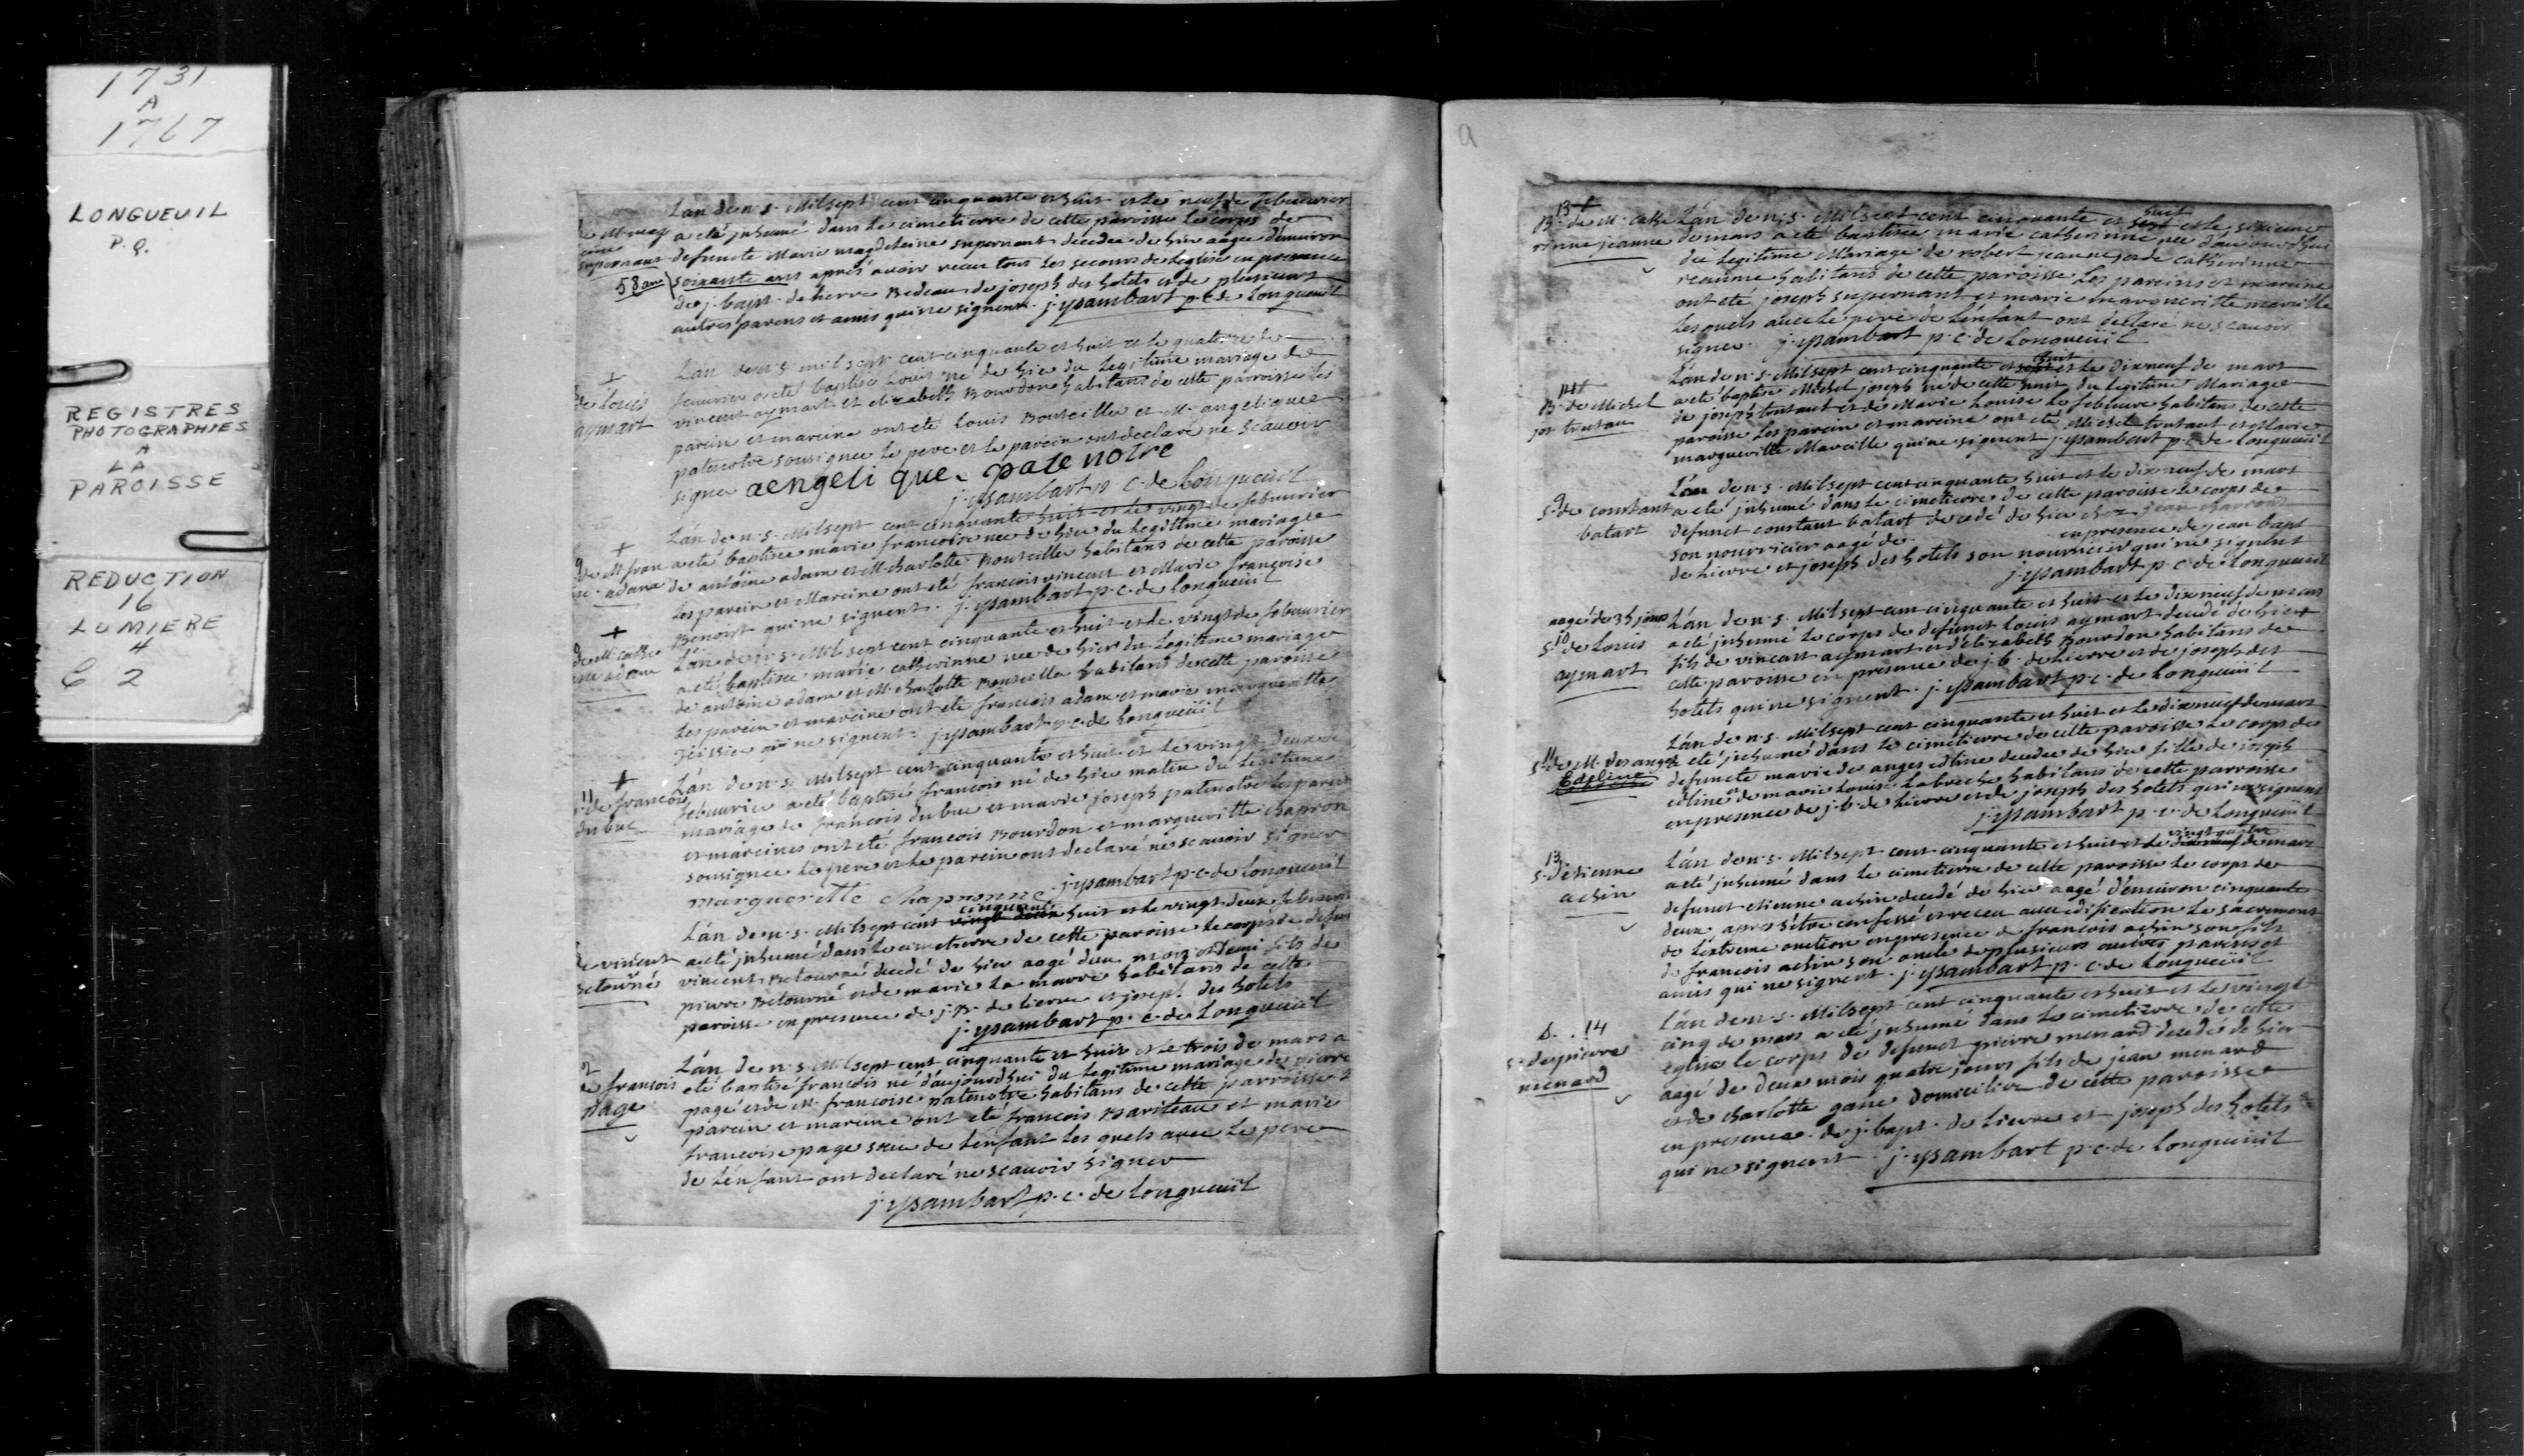 1731
A
1767
LONGUEUIL
P.Q.
REGISTRES
PHOTOGRAPHIES
A
LA
PAROISSE
REDUCTION
16
LUMIERE
4
C 2
Lán de n. s. Milsept cent cinquante et huit et le neuf de febuurier
a eté jnhumé dans le cimetierre de cette paroisse le corps de
supernant defuncte Marie magdeleine supernant decedee de hier aagee d'enuiron
58 ans soixante ans aprés auoir receu tous les secours de Leglise en presence
de j. bapt. de lierre Bedeau de joseph des hotels et de plusieurs
autres parens et amis qui ne signent. j. ysambart p. c. de Longueüil
+
de Louis
aymart
Lán de n. s. mil sept cent cinquante et huit et le quatorze de
feuurier a eté baptisé Louis né de hier du Legitime mariage de
vincent aymart et elizabeth Bourdon habitans de cette parroisse les
parein et mareine ont eté Louis Bouteiller et M. angelique
patenotre sousignee le pere et le parein ont declaré ne scauoir
signer aengeli que pate notre
j. ysambart p. c. de Longueüil
+
9
de M. fran
se. adam
Lán de n. s. Milsept cent cinquante huit et le vingt de febuurier
a eté baptisee marie francoise nee de hier du Legitime mariage
de antoine adam et M. charlotte Bouteiller habitans de cette paroisse
Les parein et Mareine ont eté francois vincent et Marie françoise
Benoist qui ne signent. j. ysambart p. c. de Longueüil
+
de M. cathe
rine adam
Lán de n. s. Mil sept cent cinquante et huit et le vingt de febuurier
a eté baptisee marie catherinne nee de hier du Legitime mariage
de antoine adam et M. charlotte Bouteiller habitans de cette paroisse
Les parein et mareine ont eté francois adam et marie margueritte
qui ne signent. j. ysambart p. c. de Longueüil
+
11
de francois
dubuc
Lán de n. s. Milsept cent cinquante et huit et le vingt deux de
febuurier a eté baptisé francois né de hier matin du Legitime
mariage de francois dubuc et marie joseph patenotre les parein
et mareines ont eté francois Bourdon et margueritte chapron
sousignee le pere et le parein ont declaré ne scauoir signer
marguerette chapronne j. ysambart p. c. de Longueuil
de vincent
Betourné
Lán de n. s. Milsept cent cinquante huit et le vingt deux febuurier
a eté jnhumé dans le cimetierre de cette paroisse le corps de defunt
vincent Betourné decedé de hier aagé dun mois et demi fils de
pierre Betourné et de marie La marre habitans de cette
paroisse en presence de j. B. de lierre et joseph des hotels
j. ysambart p. c. de Longueuil
12
de francois
page
Lán de n. s. Milsept cent cinquante et huit et le trois de mars a
eté baptisé francois né d'aujourdhui du Legitime mariage de pierre
pagé et de M. francoise patenotre habitans de cette parroisse
parein et mareine ont eté francois Bariteau et marie
francoise page soeur de Lenfant les quels auec le pere
de Lénfant ont declaré ne scauoir signer
j. ysambart p. c. de Longueuil
a
13 +
B. de M. cathe
rinne jeanne
Lán de n. s. Milsept cent cinquante et huit et le sixieme
de mars a eté baptisee marie catherinne nee d'aujourdhui
du Legitime Mariage de robert jeanne et de catherinne
reaume habitans de cette paroisse Les pareins et mareine
ont eté joseph supernant et marie margueritte marcille
Les quels auec Le pere de Lenfant ont declaré ne scauoir
signer. j. ysambart p. c. de Longueüil
14 +
B. de Michel
jos. trutau
Lán de n. s. Milsept cent cinquante et huit et le Dixneuf de mars
a eté baptisé Michel joseph né de cette nuit du Legitime Mariage
de joseph trutaut et de Marie Louise Le febuure habitan de cette
paroisse les parein et mareine ont eté Michel trutaut et Marie
margueritte Marcille qui ne signent j. ysambart p. c. de Longueüil
9
S. de constant
batart
Lán de n. s. Milsept cent cinquante huit et le Dixneuf de mars
a eté jnhumé dans le cimetierre de cette paroisse le corps de
defunct constant batart decedé de hier chez jean charron
son nourricier aagé de en presence de jean bapt
de lierre et joseph des hotels son nourricier qui ne signent
j. ysambart p. c. de Longueuil
aagé de 34 jours
10
S. de Louis
aymart
Lán de n. s. Milsept cent cinquante et huit et le dixneuf de mars
a eté jnhumé le corps de defunct Louis aymart decedé de hier
fils de vincent aymart et d'elizabeth Bourdon habitans de
cette paroisse en presence de j. b. de lierre et de joseph des
hotels qui ne signent. j. ysambart p. c. de Longueüil
11
S. de M. des anges
Edeline
Lán de n. s. Milsept cent cinquante et huit et le dixneuf de mars
a eté jnhumé dans le cimetierre de cette paroisse le corps de
defuncte marie des anges edline decedee de hier fille de joseph
edline et de marie Louise Labreche habitans de cette parroisse
en presence de j. b. de lierre et de joseph des hotels qui ne signent
j. ysambart p. c. de Longueüil
13
S. d'etienne
achin
Lán de n. s. Milsept cent cinquante et huit et le vingt quatre de mars
a eté jnhumé dans le cimetierre de cette paroisse le corps de
defunct etienne achin decedé de hier aagé d'enuiron cinquante
deux apres s'étre confessé et receu auec edification le sacrement
de l'extreme onction en presence de francois achin son fils
de francois achin son oncle de plusieurs autres parens et
amis qui ne signent. j. ysambart p. c. de Longueüil
S. 14
S. de pierre
menard
Lán de n. s. Milsept cent cinquante et huit et le vingt
cinq de mars a eté jnhumé dans le cimetierre de cette
eglise le corps de defunct pierre menard decedé de hier
aagé de deux mois quatre jours fils de jean menard
et de charlotte gane domiciliee de cette paroisse
en presence de j. bapt. de lierre et joseph des hotels
qui ne signent. j. ysambart p. c. de Longueüil